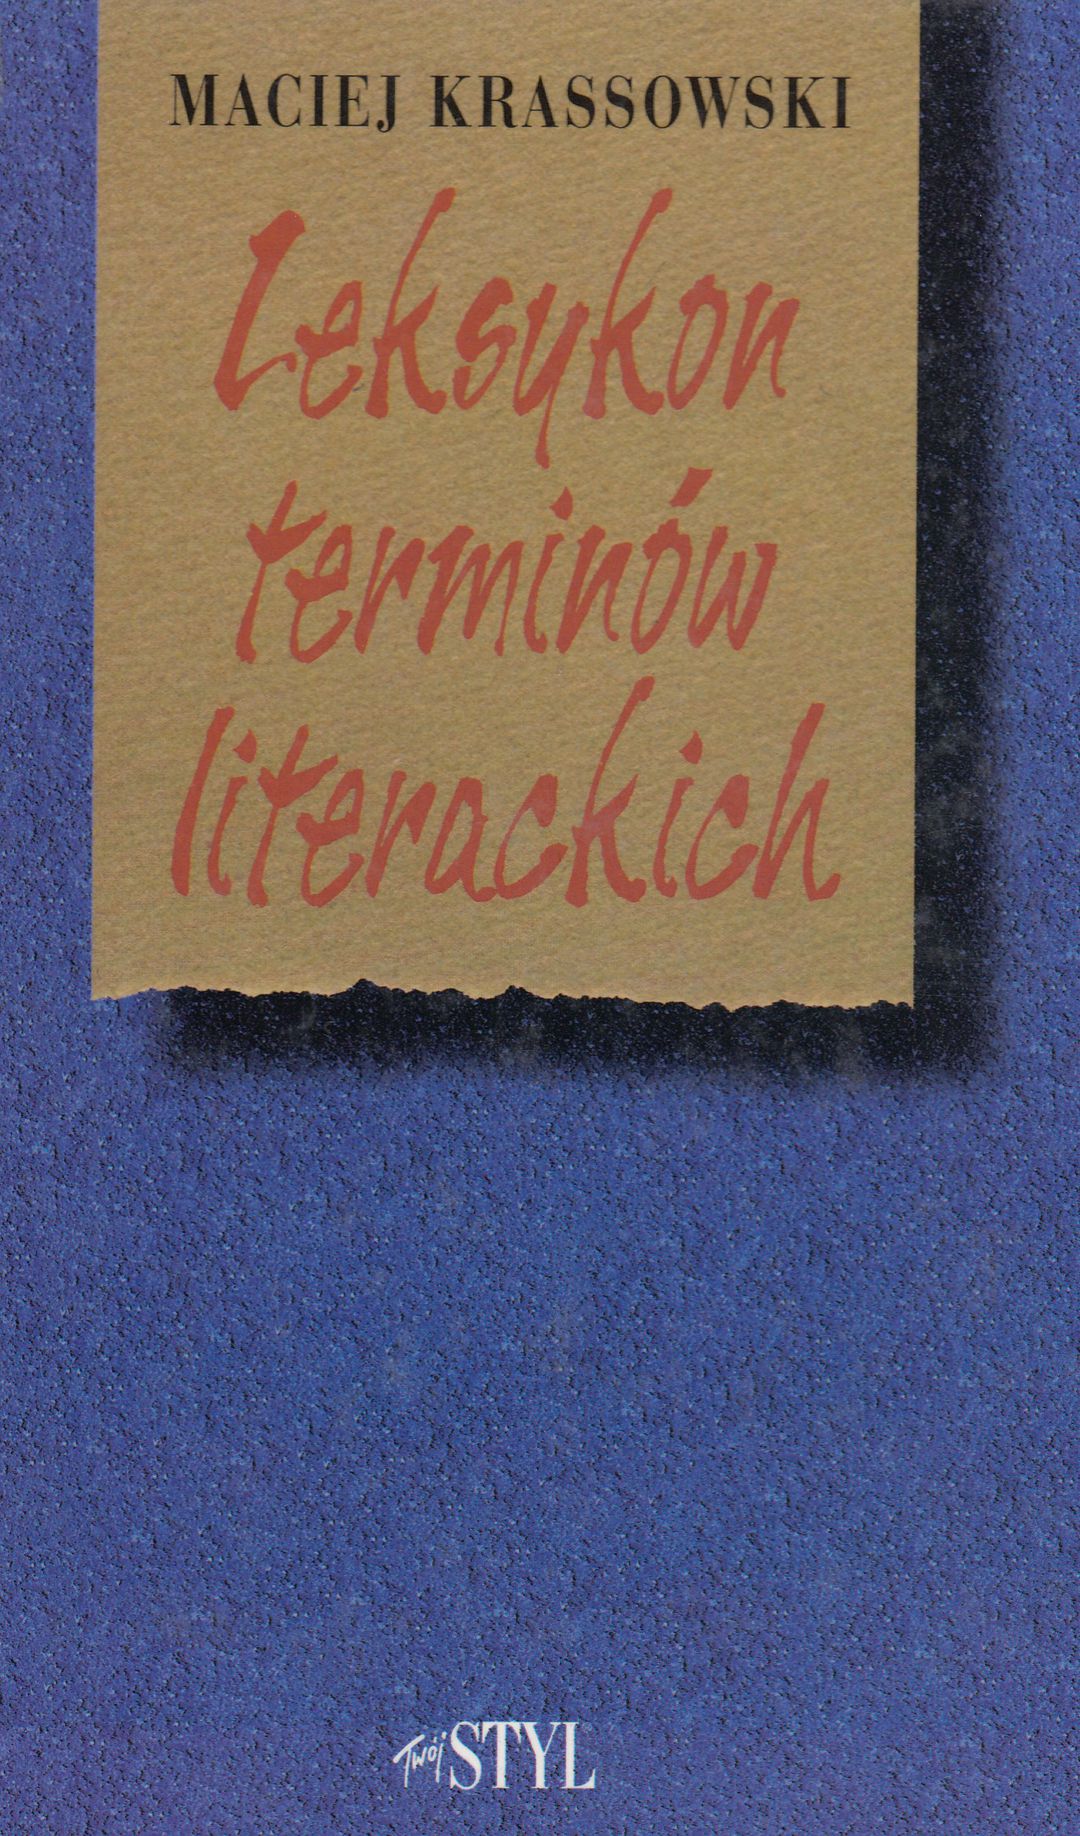 MACIEJ KRASSOWSKI
Leksykon
terminów
literackich
Twój STYL